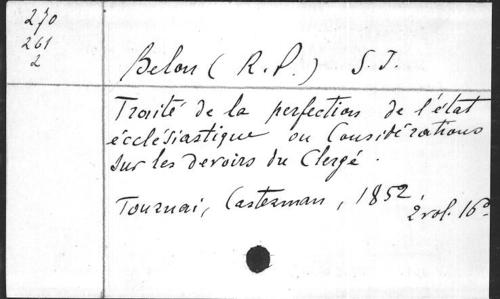 270
261
2
Belon (R. P.) S. J.
Traité de la perfection de l'état
écclésiastique ou Considérations
sur les devoirs du Clergé.
Tournai, Casterman, 1852,
2 vol. 16°